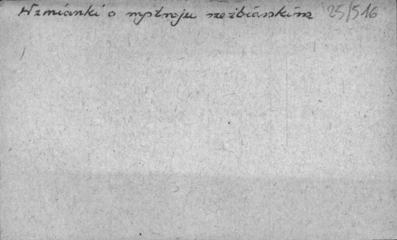 Wzmianki o wystroju rzeźbiarskim 25/516